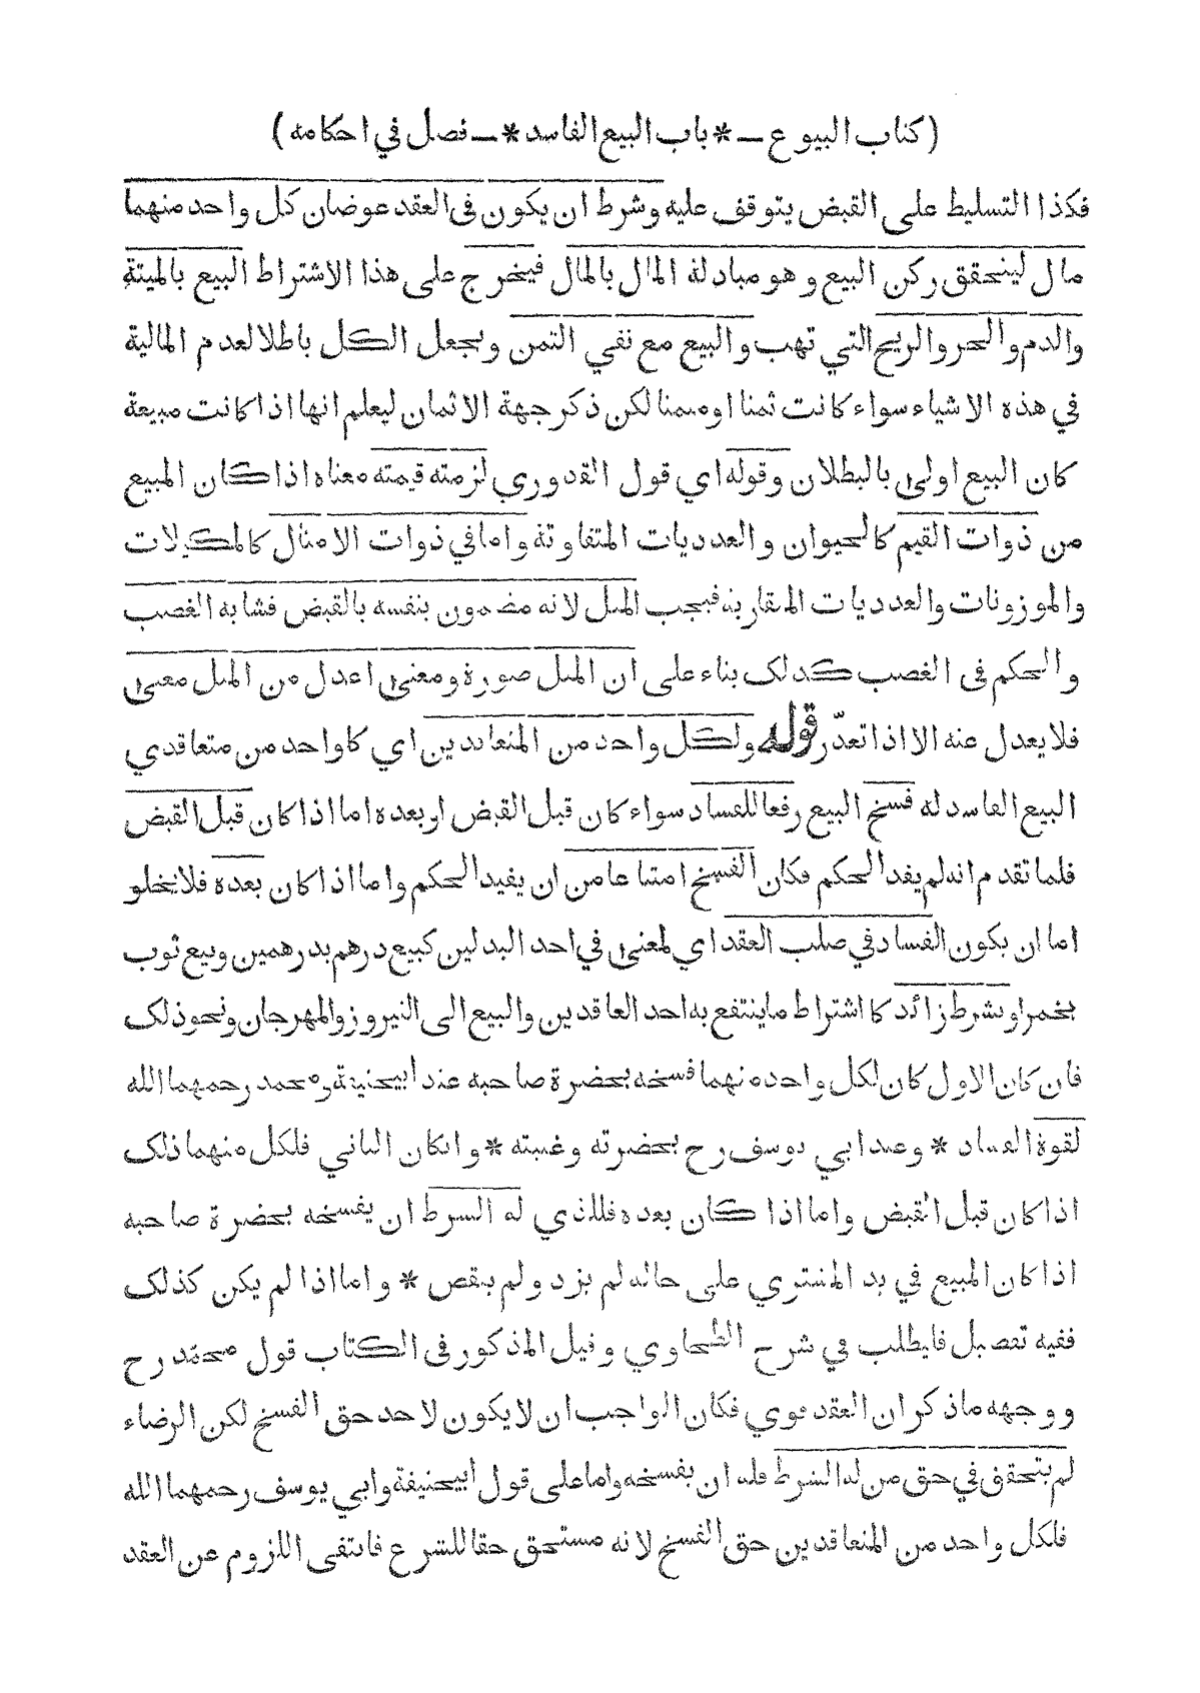 (كتاب البيوع — * باب البيع الفاسد * — فصل في احكامه)
فكذا التسليط على القبض يتوقف عليه وشرط ان يكون فى العقد عوضان كل واحد منهما
مال ليتحقق ركن البيع وهو مبادلة المال بالمال فيخرج على هذا الاشتراط البيع بالميتة
والدم والحر والريح التي تهب والبيع مع نفي الثمن ويجعل الكل باطلا لعدم المالية
في هذه الاشياء سواء كانت ثمنا او مثمنا لكن ذكر جهة الاثمان ليعلم انها اذا كانت مبيعة
كان البيع اولى بالبطلان وقوله اي قول القدوري لزمته قيمته معناه اذا كان المبيع
من ذوات القيم كالحيوان والعدديات المتفاوتة واما في ذوات الامثال كالمكيلات
والموزونات والعدديات المتقاربة فيجب المثل لانه مضمون بنفسه بالقبض فشابه الغصب
والحكم فى الغصب كذلك بناء على ان المثل صورة ومعنى اعدل من المثل معنى
فلا يعدل عنه الا اذا تعذّر قوله ولكل واحد من المتعاقدين اي كل واحد من متعاقدي
البيع الفاسد له فسخ البيع رفعا للفساد سواء كان قبل القبض او بعده اما اذا كان قبل القبض
فلما تقدم انه لم يفد الحكم فكان الفسخ امتناعا من ان يفيد الحكم واما اذا كان بعده فلا يخلو
اما ان يكون الفساد في صلب العقد اي لمعنى في احد البدلين كبيع درهم بدرهمين وبيع ثوب
بخمر او بشرط زائد كاشتراط ما ينتفع به احد العاقدين والبيع الى النيروز والمهرجان ونحو ذلك
فان كان الاول كان لكل واحد منهما فسخه بحضرة صاحبه عند ابيحنيفة ومحمد رحمهما الله
لقوة الفساد * وعند ابي يوسف رح بحضرته وغيبته * وان كان الثاني فلكل منهما ذلك
اذا كان قبل القبض واما اذا كان بعده فللذي له الشرط ان يفسخه بحضرة صاحبه
اذا كان المبيع في يد المشتري على حاله لم يزد ولم ينقص * واما اذا لم يكن كذلك
ففيه تفصيل فليطلب في شرح الطحاوي وقيل المذكور فى الكتاب قول محمّد رح
ووجهه ما ذكر ان العقد قوي فكان الواجب ان لا يكون لاحد حق الفسخ لكن الرضاء
لم يتحقق في حق من له الشرط فله ان يفسخه واما على قول ابيحنيفة وابي يوسف رحمهما الله
فلكل واحد من المتعاقدين حق الفسخ لانه مستحق حقا للشرع فانتفى اللزوم عن العقد